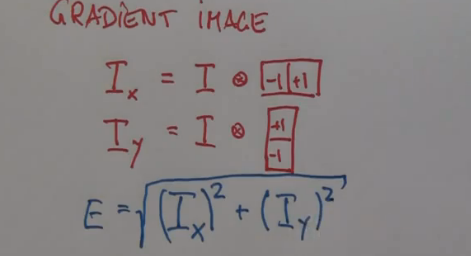 GRADIENT IMAGE
I_x = I ⊛ [-1|+1]
I_y = I ⊗ [+1|-1]
E = √((I_x)² + (I_y)²)